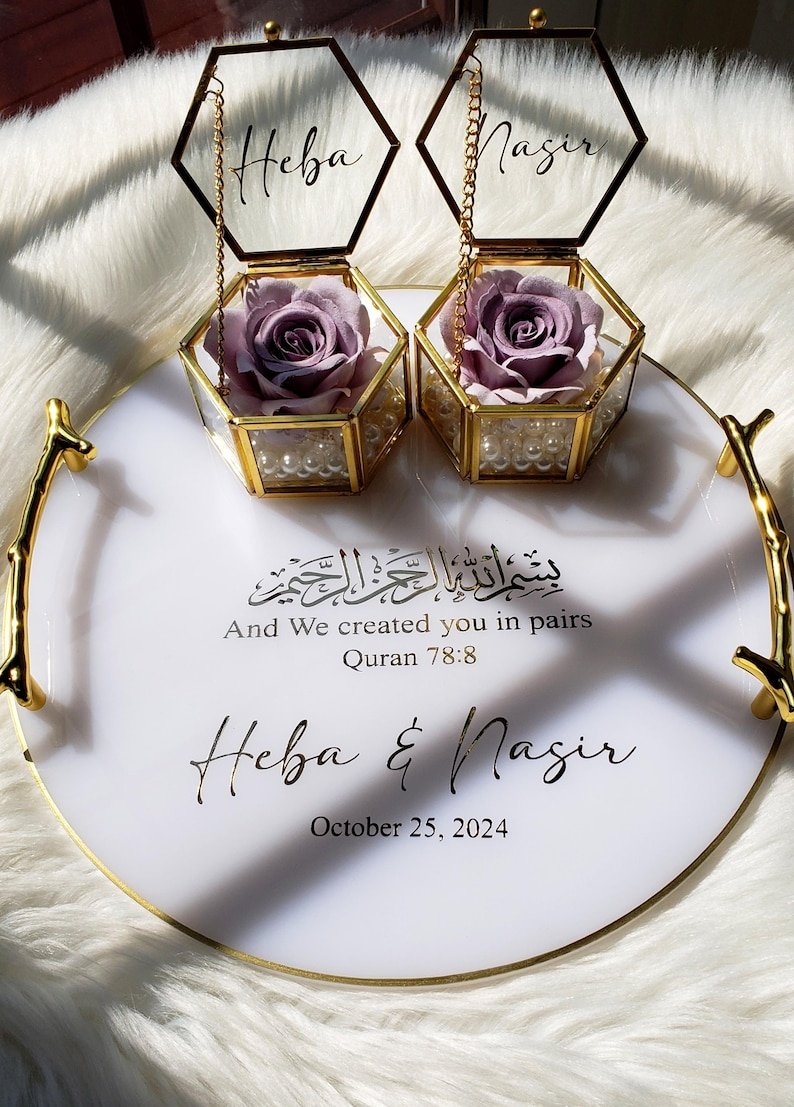 Heba
Nasir
بسم الله الرحمن الرحيم
And We created you in pairs
Quran 78:8
Heba & Nasir
October 25, 2024